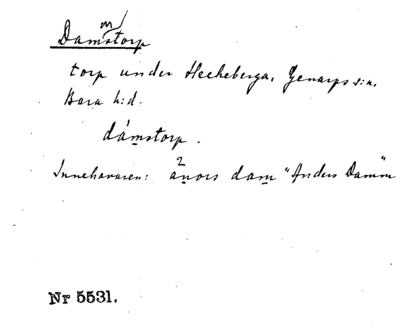 Dammstorp
torp under Heckeberga, Genarps s:n,
Bara h:d.
dámstorp.
Innehavaren: 2anors dam "Anders Damm"
Nr 5531.